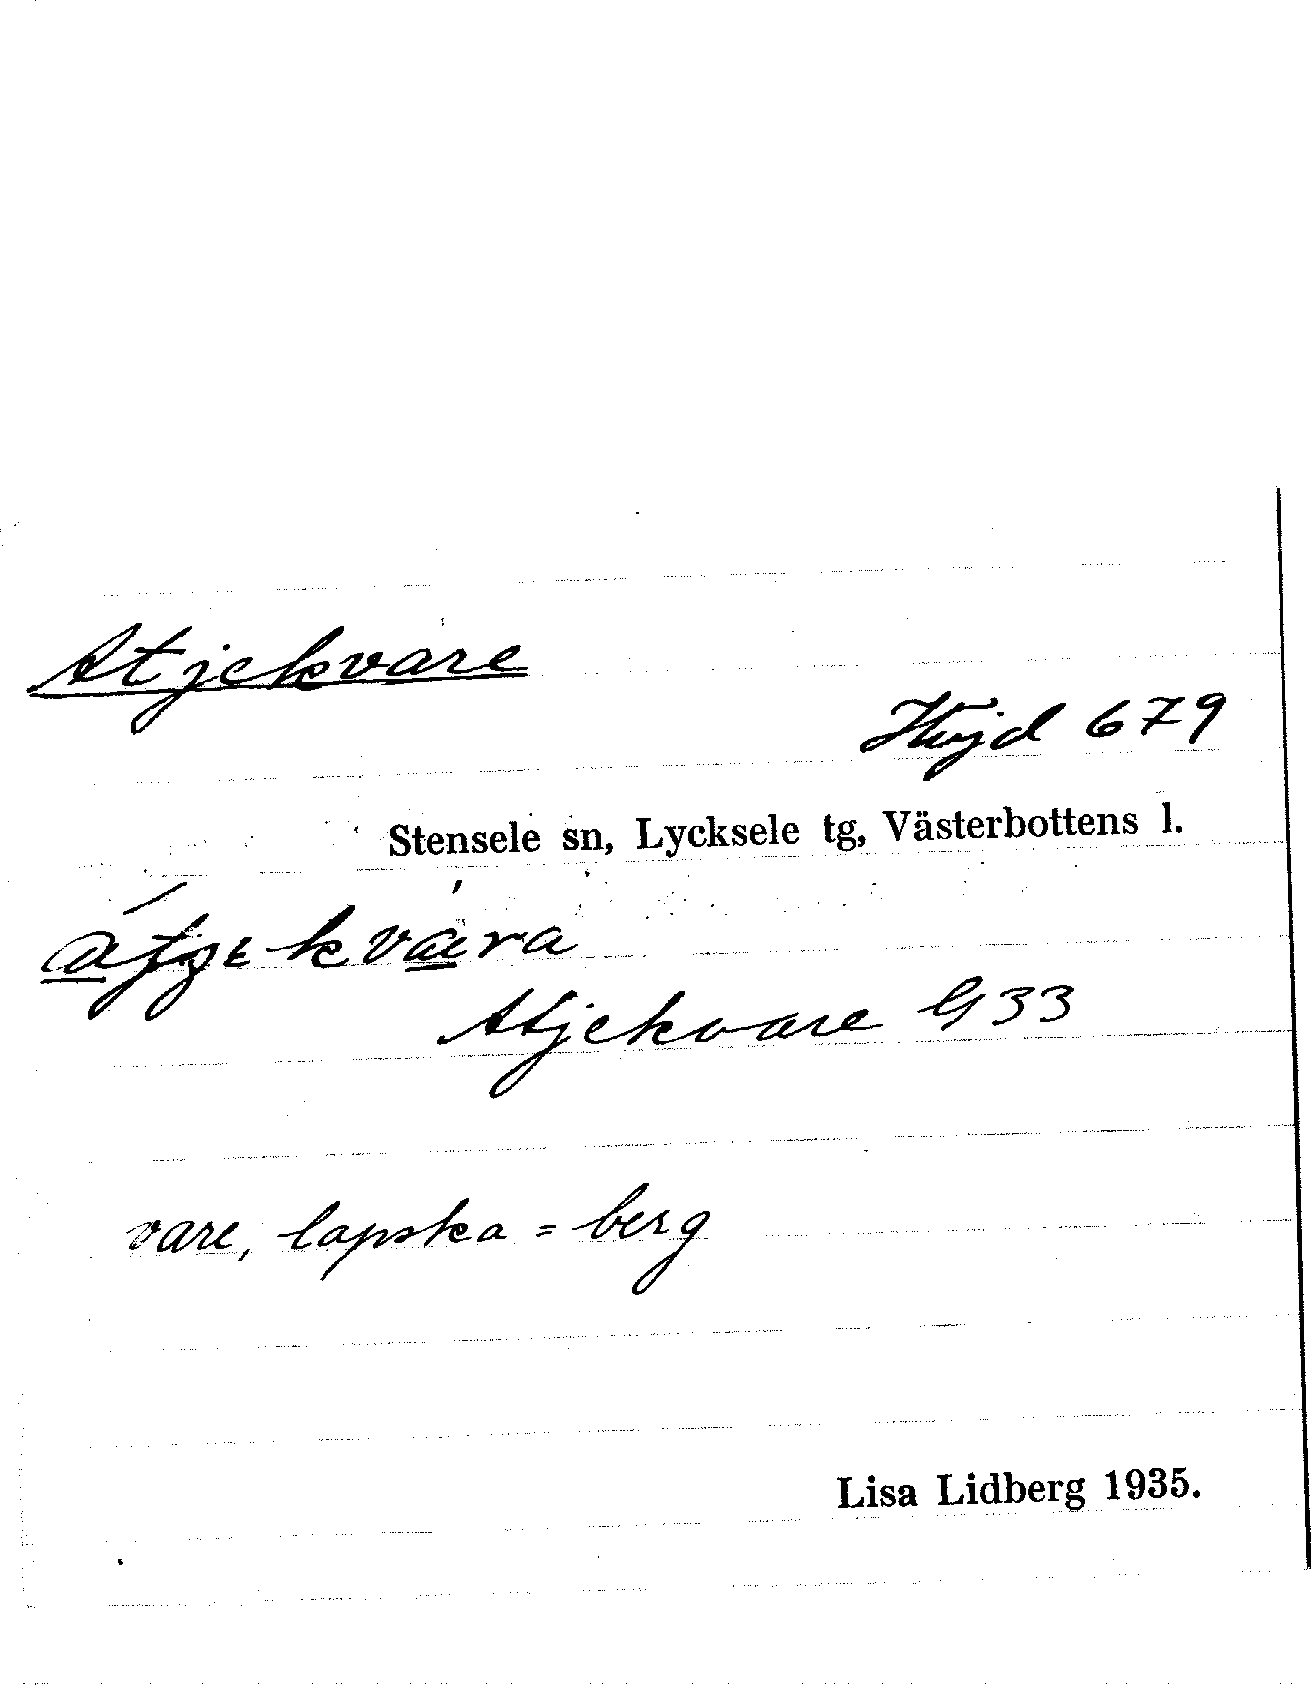 Atjekvare
Höjd 679
Stensele sn, Lycksele tg, Västerbottens l.
Atjekvare G 33
vare, lapska = berg
Lisa Lidberg 1935.